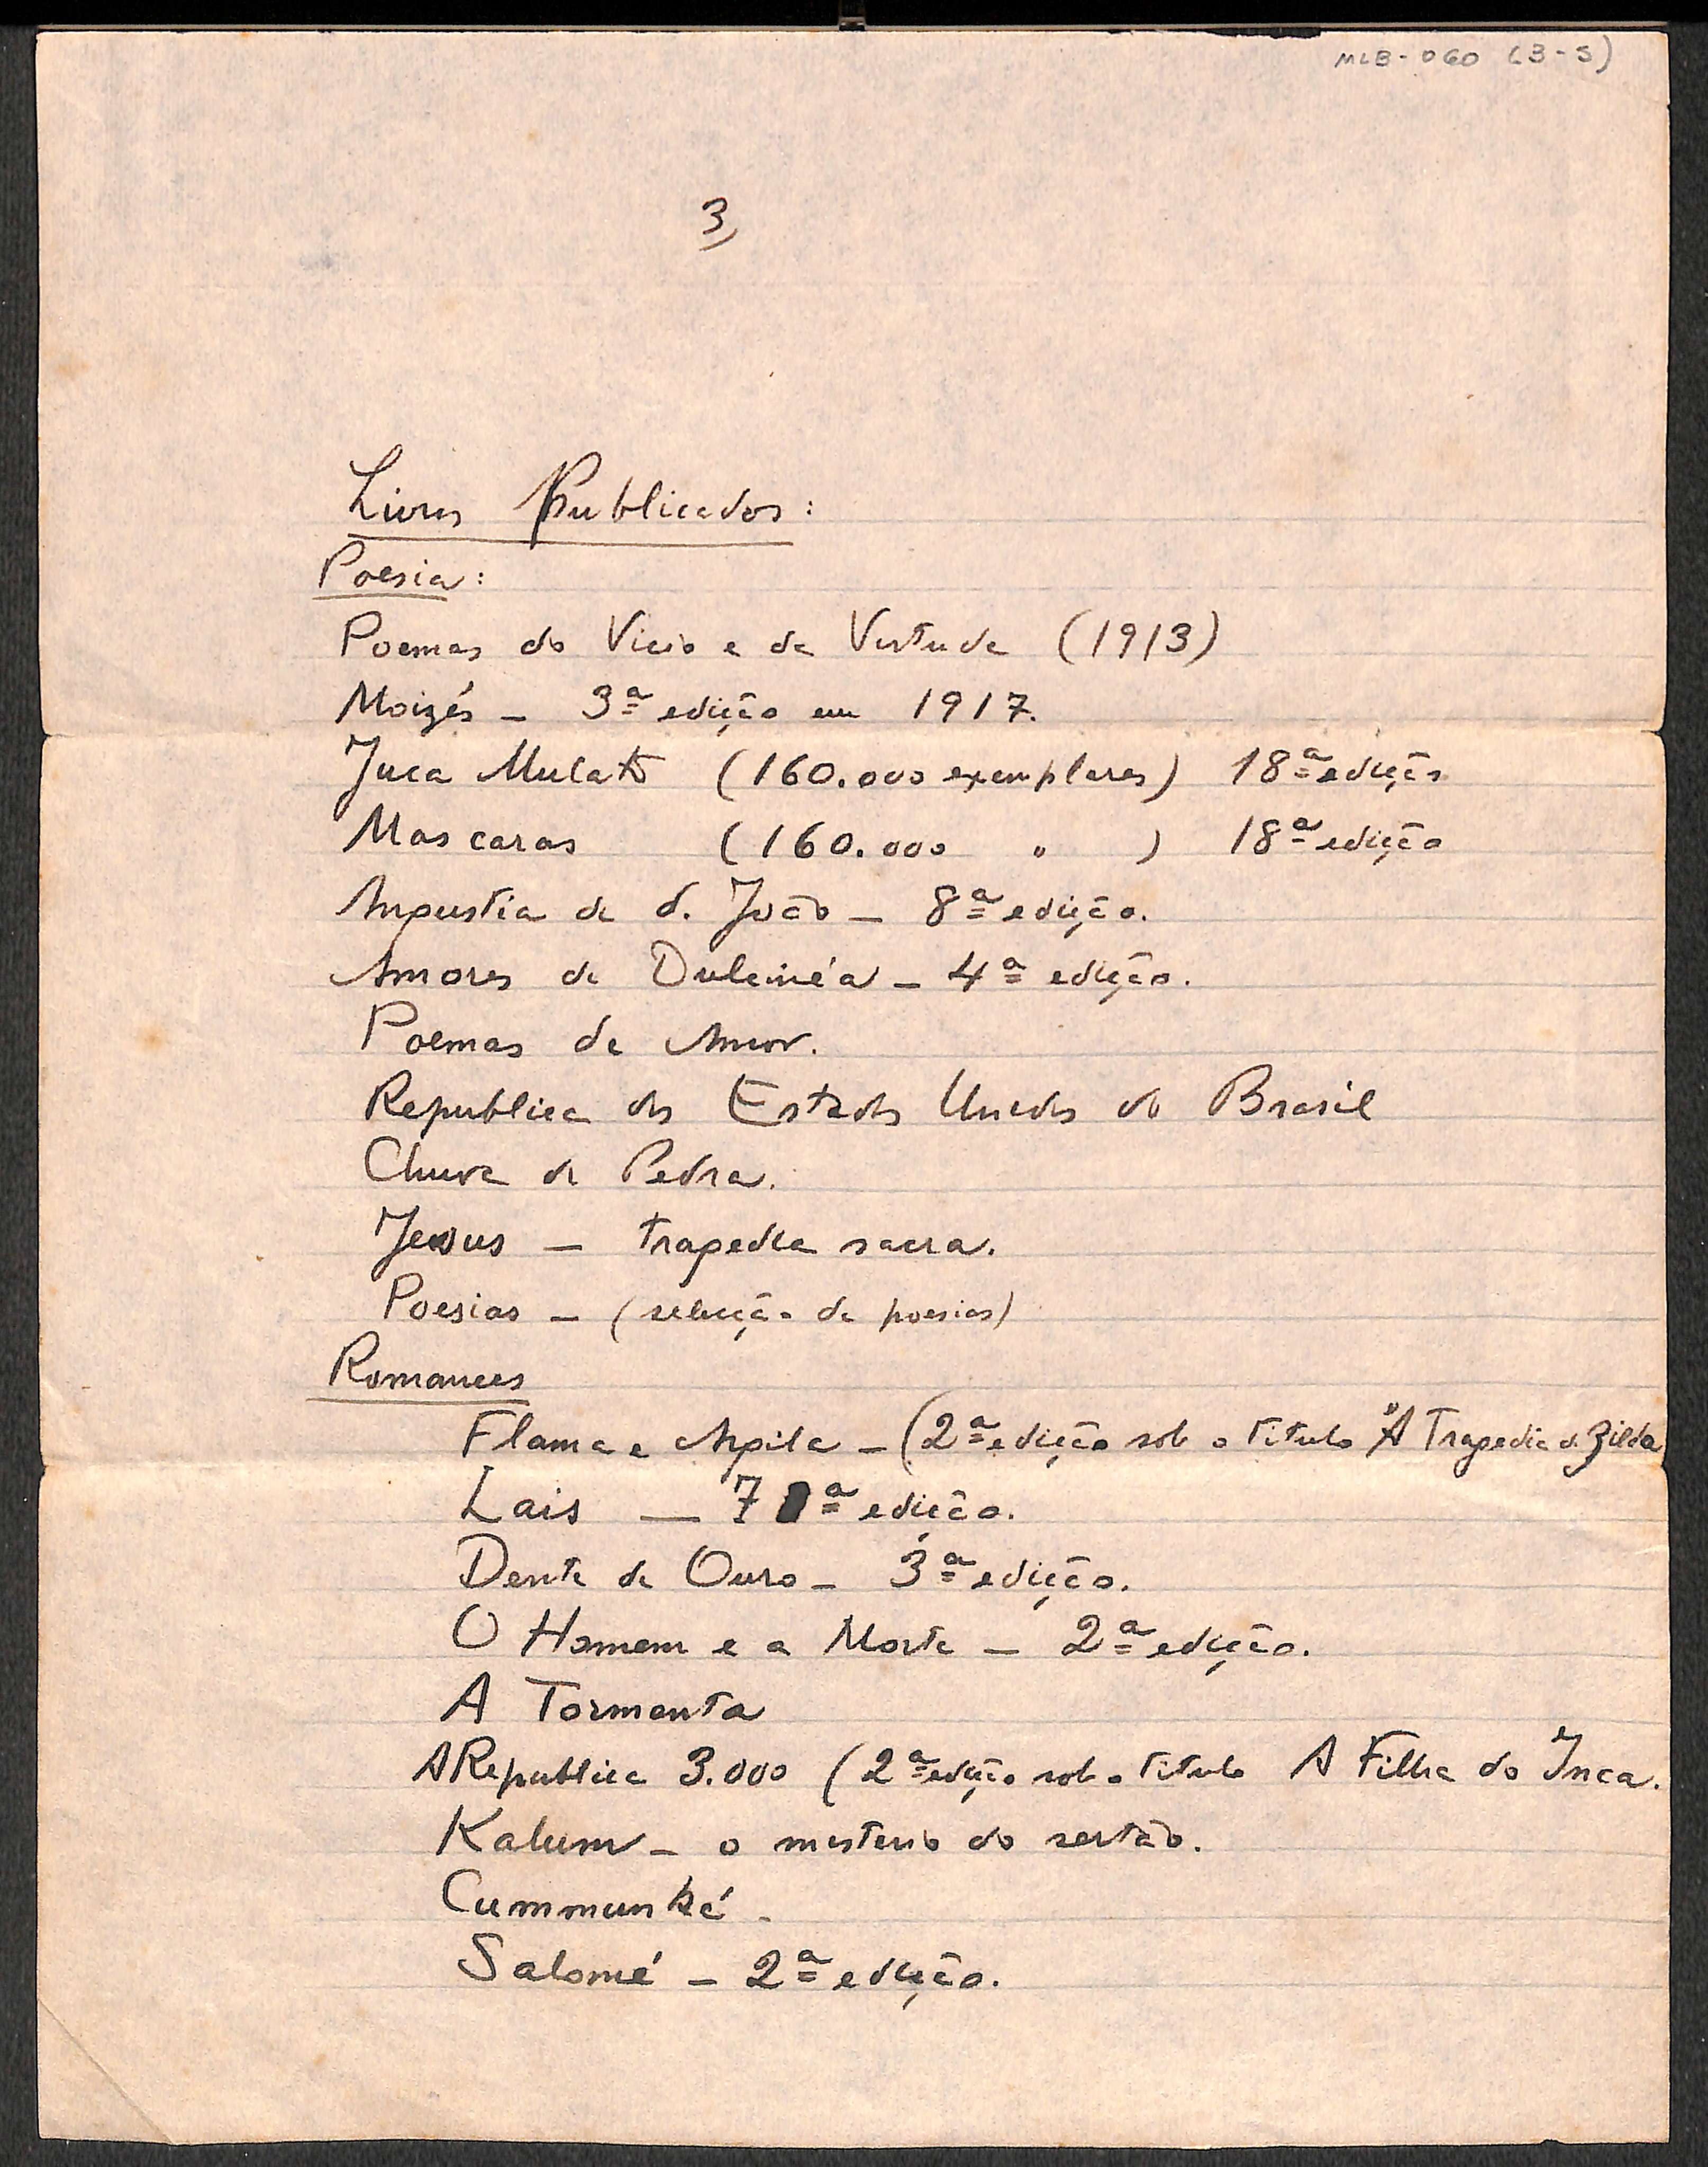 MLB-060 (3-5)
3)
Livros Publicados:
Poesia:
Poemas do Vicio e da Virtude (1913)
Moizés - 3ª edição em 1917.
Juca Mulato (160.000 exemplares) 18ª edição
Mascaras (160.000 " ) 18ª edição
Angustia de d. João - 8ª edição.
Amores de Dulcinéa - 4ª edição.
Poemas de Amor.
Republica dos Estados Unidos do Brasil
Chuva de Pedra.
Jesus - tragedia sacra.
Poesias - (selecção de poesias)
Romances
Flama e Argila - (2ª edição sob o titulo "A Tragedia de Zilda
Lais — 7ª edição.
Dente de Ouro - 3ª edição.
O Homem e a Morte - 2ª edição.
A Tormenta
A Republica 3.000 (2ª edição sob o titulo A Filha do Inca.
Kalum - o misterio do sertão.
Cummunká.
Salomé - 2ª edição.